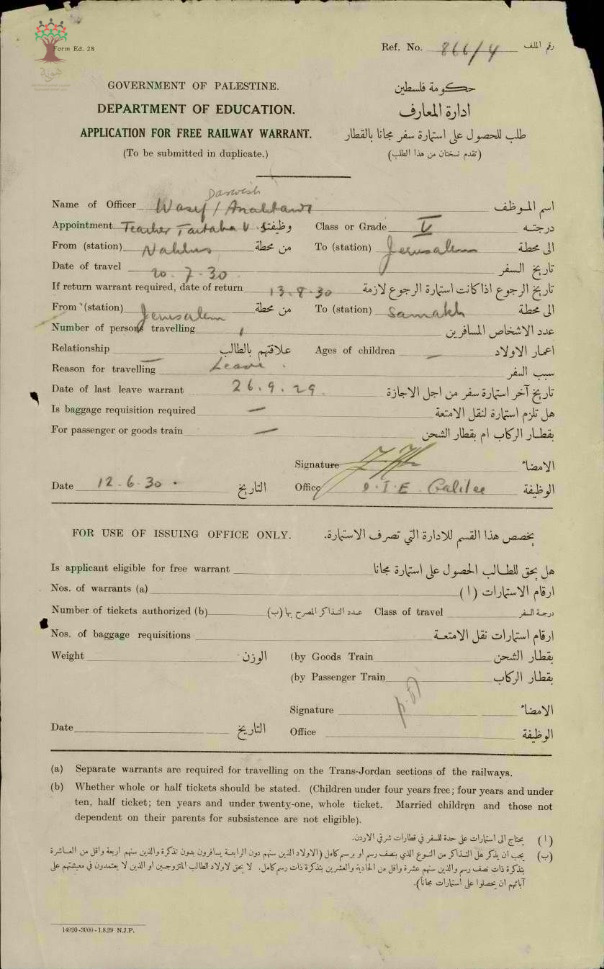 Form Ed. 28
Ref. No. 866/4 رقم الملف
GOVERNMENT OF PALESTINE. حكومة فلسطين
DEPARTMENT OF EDUCATION. ادارة المعارف
APPLICATION FOR FREE RAILWAY WARRANT. طلب للحصول على استمارة سفر مجانا بالقطار
(To be submitted in duplicate.) (تقدم نسختان من هذا الطلب)
Darwish
Name of Officer Wasif / اسم الموظف
Appointment Teacher وظيفته Class or Grade V درجته
From (station) Nablus من محطة To (station) Jerusalem الى محطة
Date of travel 20.7.30 تاريخ السفر
If return warrant required, date of return 13.8.30 تاريخ الرجوع اذا كانت استمارة الرجوع لازمة
From (station) Jerusalem من محطة To (station) Samakh الى محطة
Number of persons travelling 1 عدد الاشخاص المسافرين
Relationship — علاقتهم بالطالب Ages of children — اعمار الاولاد
Reason for travelling Leave. سبب السفر
Date of last leave warrant 26.9.29. تاريخ آخر استمارة سفر من اجل الاجازة
Is baggage requisition required — هل تلزم استمارة لنقل الامتعة
For passenger or goods train — بقطار الركاب ام بقطار الشحن
Signature الامضاء
Date 12.6.30. التاريخ Office D.I.E. Galilee الوظيفة
FOR USE OF ISSUING OFFICE ONLY. يخصص هذا القسم للادارة التي تصرف الاستمارة.
Is applicant eligible for free warrant هل يحق للطالب الحصول على استمارة مجانا
Nos. of warrants (a) ارقام الاستمارات (ا)
Number of tickets authorized (b) عدد التذاكر المصرح بها (ب) Class of travel درجة السفر
Nos. of baggage requisitions ارقام استمارات نقل الامتعة
Weight الوزن (by Goods Train بقطار الشحن
(by Passenger Train بقطار الركاب
Signature الامضاء
Date التاريخ Office الوظيفة
(a) Separate warrants are required for travelling on the Trans-Jordan sections of the railways.
(b) Whether whole or half tickets should be stated. (Children under four years free; four years and under
ten, half ticket; ten years and under twenty-one, whole ticket. Married children and those not
dependent on their parents for subsistence are not eligible).
(ا) يحتاج الى استمارات على حدة للسفر في قطارات شرقي الاردن.
(ب) يجب ان يذكر هل التذاكر من النوع الذي بنصف رسم او برسم كامل (الاولاد الذين سنهم دون الرابعة يسافرون بدون تذكرة والذين سنهم اربعة واقل من العاشرة
بتذكرة ذات نصف رسم والذين سنهم عشرة واقل من الحادية والعشرين بتذكرة ذات رسم كامل. لا يحق لاولاد الطالب المتزوجين او الذين لا يعتمدون في معيشتهم على
آبائهم ان يحصلوا على استمارات مجانا).
14690-2000-1.8.29 N.J.P.